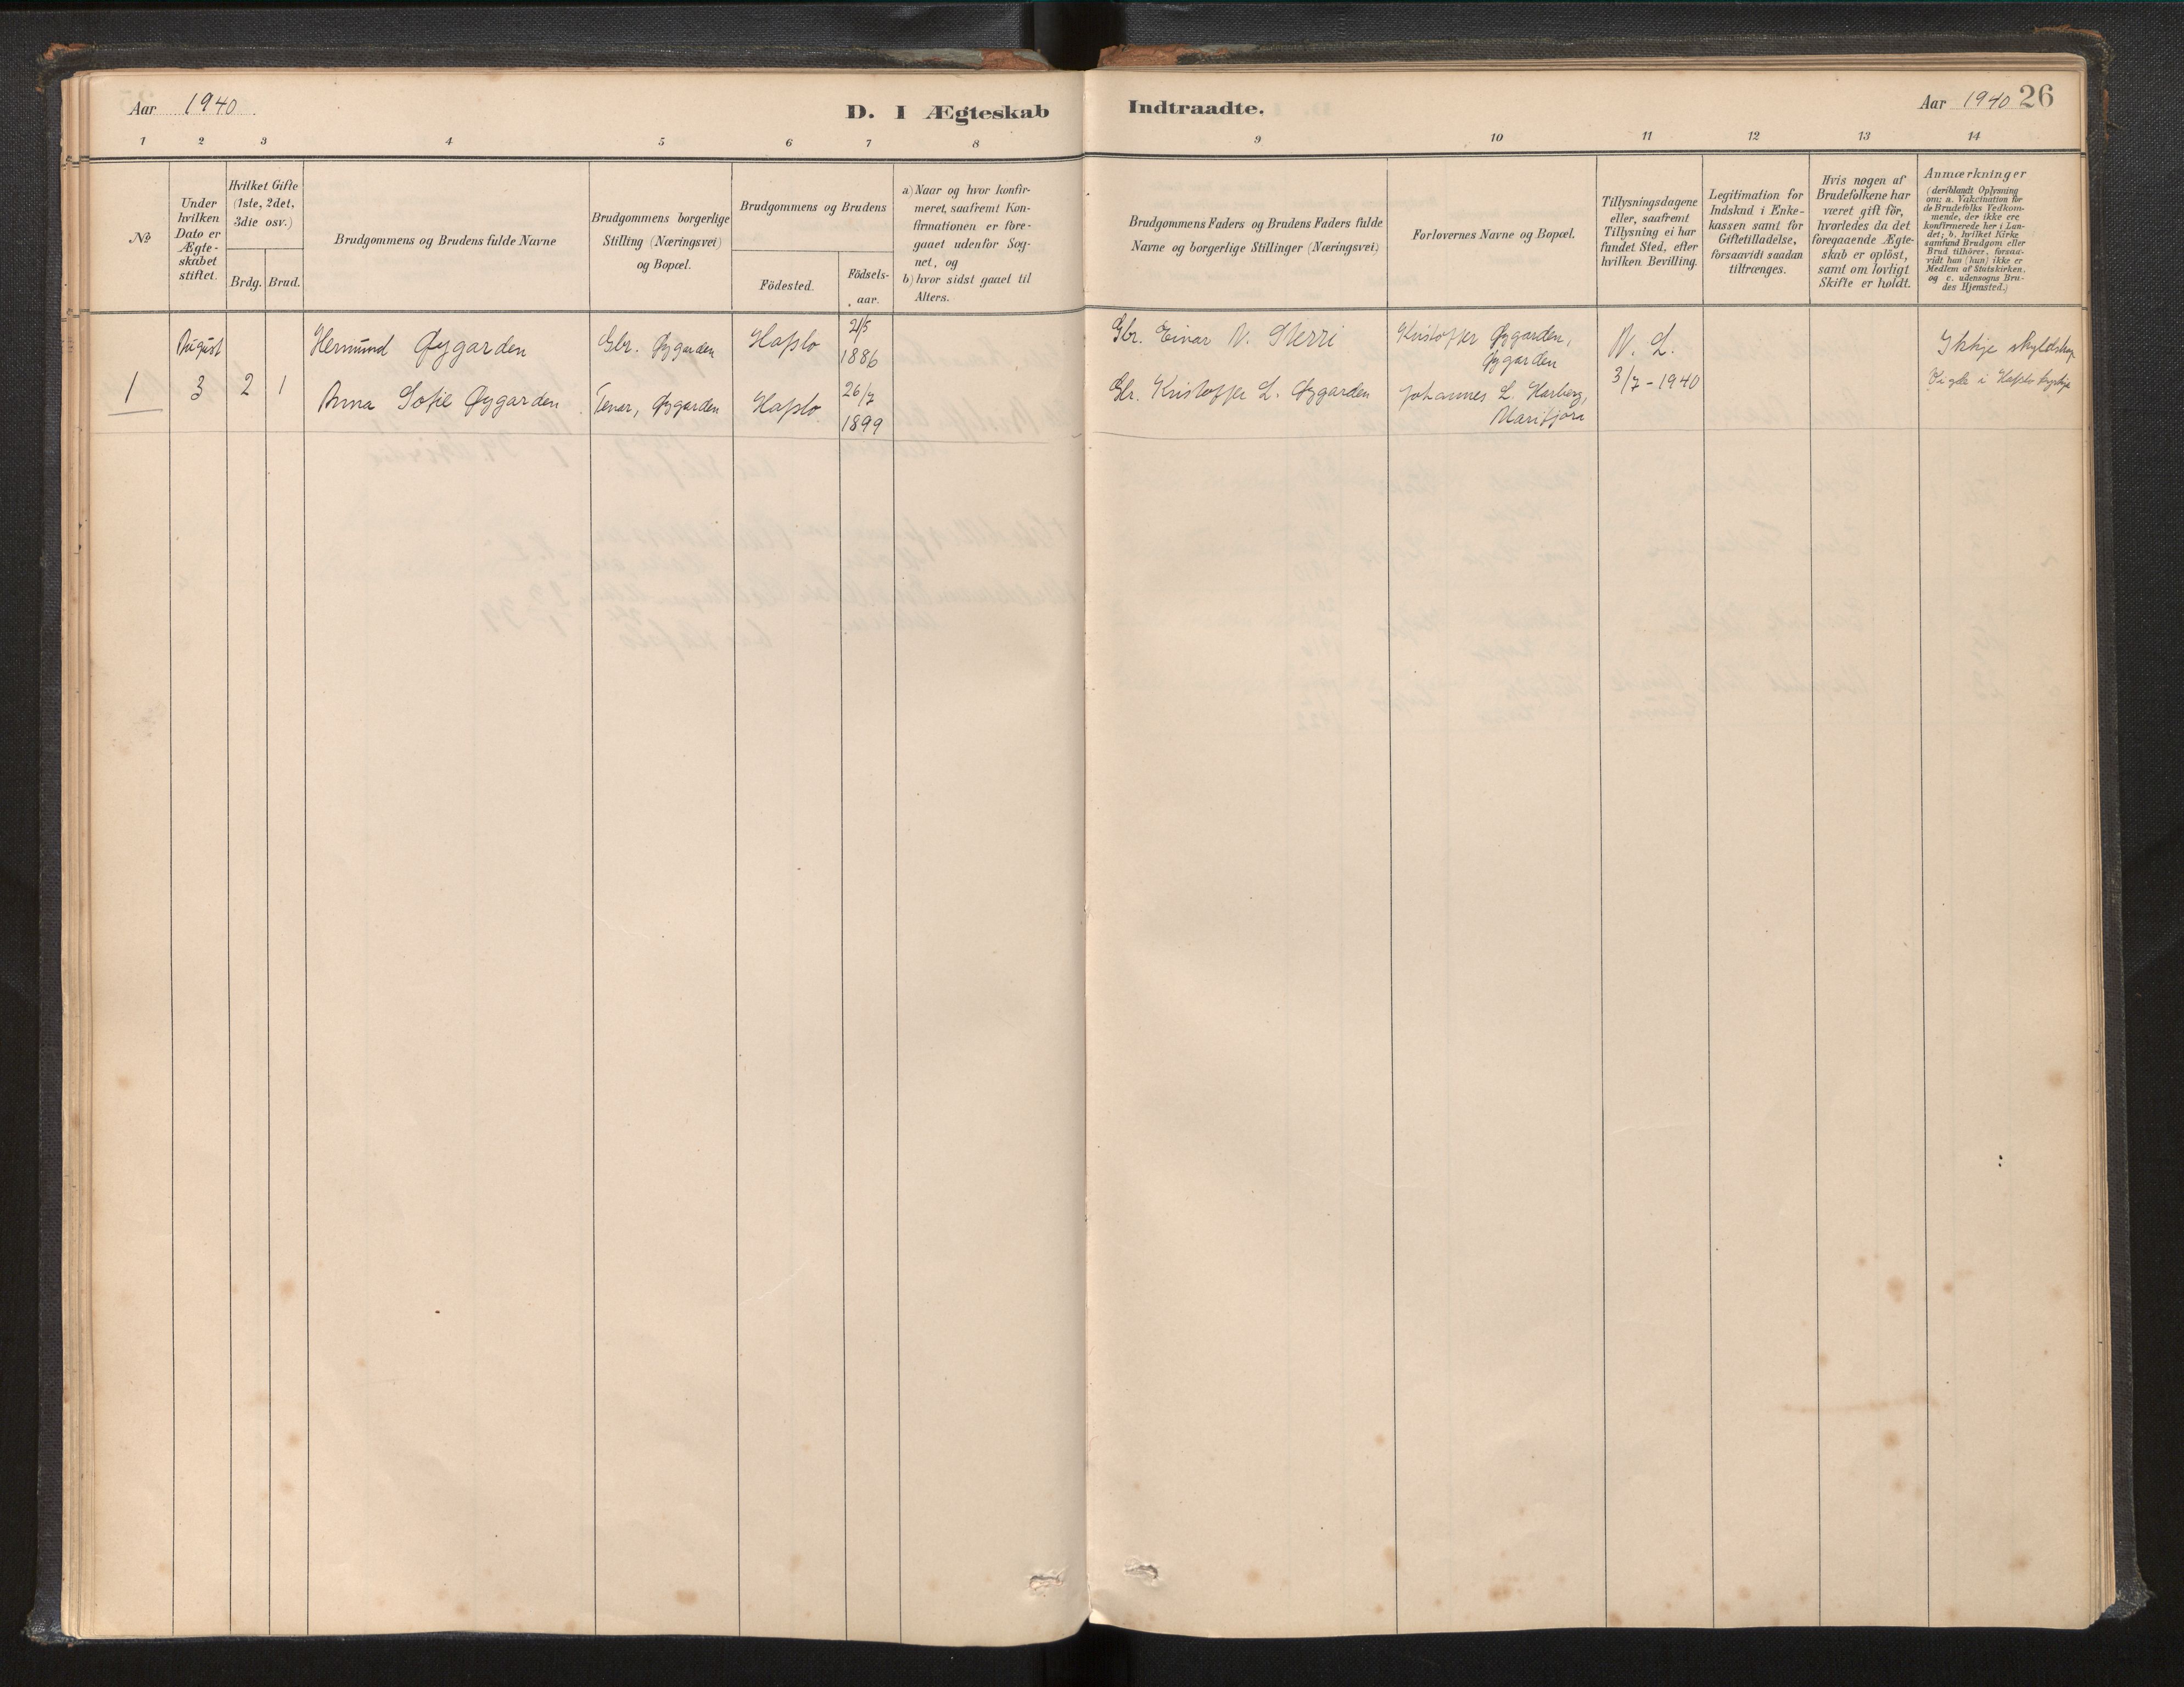 Aar 1940
D. I Ægteskab
Indtraadte.
Aar 1940 26
1 2 3 4 5 6 7 8 9 10 11 12 13 14
No
Under
hvilken
Dato er
Ægte-
skabet
stiftet.
Hvilket Gifte
(1ste, 2det,
3die osv.)
Brdg. Brud.
Brudgommens og Brudens fulde Navne
Brudgommens borgerlige
Stilling (Næringsvei)
og Bopæl.
Brudgommens og Brudens
Födested.
Födsels-
aar.
a) Naar og hvor konfir-
meret, saafremt Kon-
firmationen er fore-
gaaet udenfor Sog-
net, og
b) hvor sidst gaaet til
Alters.
Brudgommens Faders og Brudens Faders fulde
Navne og borgerlige Stillinger (Næringsvei)
Forlovernes Navne og Bopæl.
Tillysningsdagene
eller, saafremt
Tillysning ei har
fundet Sted, efter
hvilken Bevilling.
Legitimation for
Indskud i Enke-
kassen samt for
Giftetilladelse,
forsaavidt saadan
tiltrænges.
Hvis nogen af
Brudefolkene har
været gift för,
hvorledes da det
foregaaende Ægte-
skab er oplöst,
samt om lovligt
Skifte er holdt.
Anmærkninger
(deriblandt Oplysning
om: a. Vakcination for
de Brudefolks Vedkom-
mende, der ikke ere
konfirmerede her i Lan-
det; b. hvilket Kirke
samfund Brudgom eller
Brud tilhörer, forsaa-
vidt han (hun) ikke er
Medlem af Statskirken.
og c. udensogns Bru-
des Hjemsted.)
August Hermund Øygarden Gbr. Øygarden Hafslo 21/5 1886 Gbr. Einar N. Sterri Kristoffer Øygarden, Øygarden N. L. Ikkje skyldskap
1 3 2 1 Anna Sofie Øygarden Tenar, Øygarden Hafslo 26/7 1899 Gbr. Kristoffer L. Øygarden Johannes L. Harberg, Marifjøra 3/7-1940 Vigde i Hafslo kyrkje